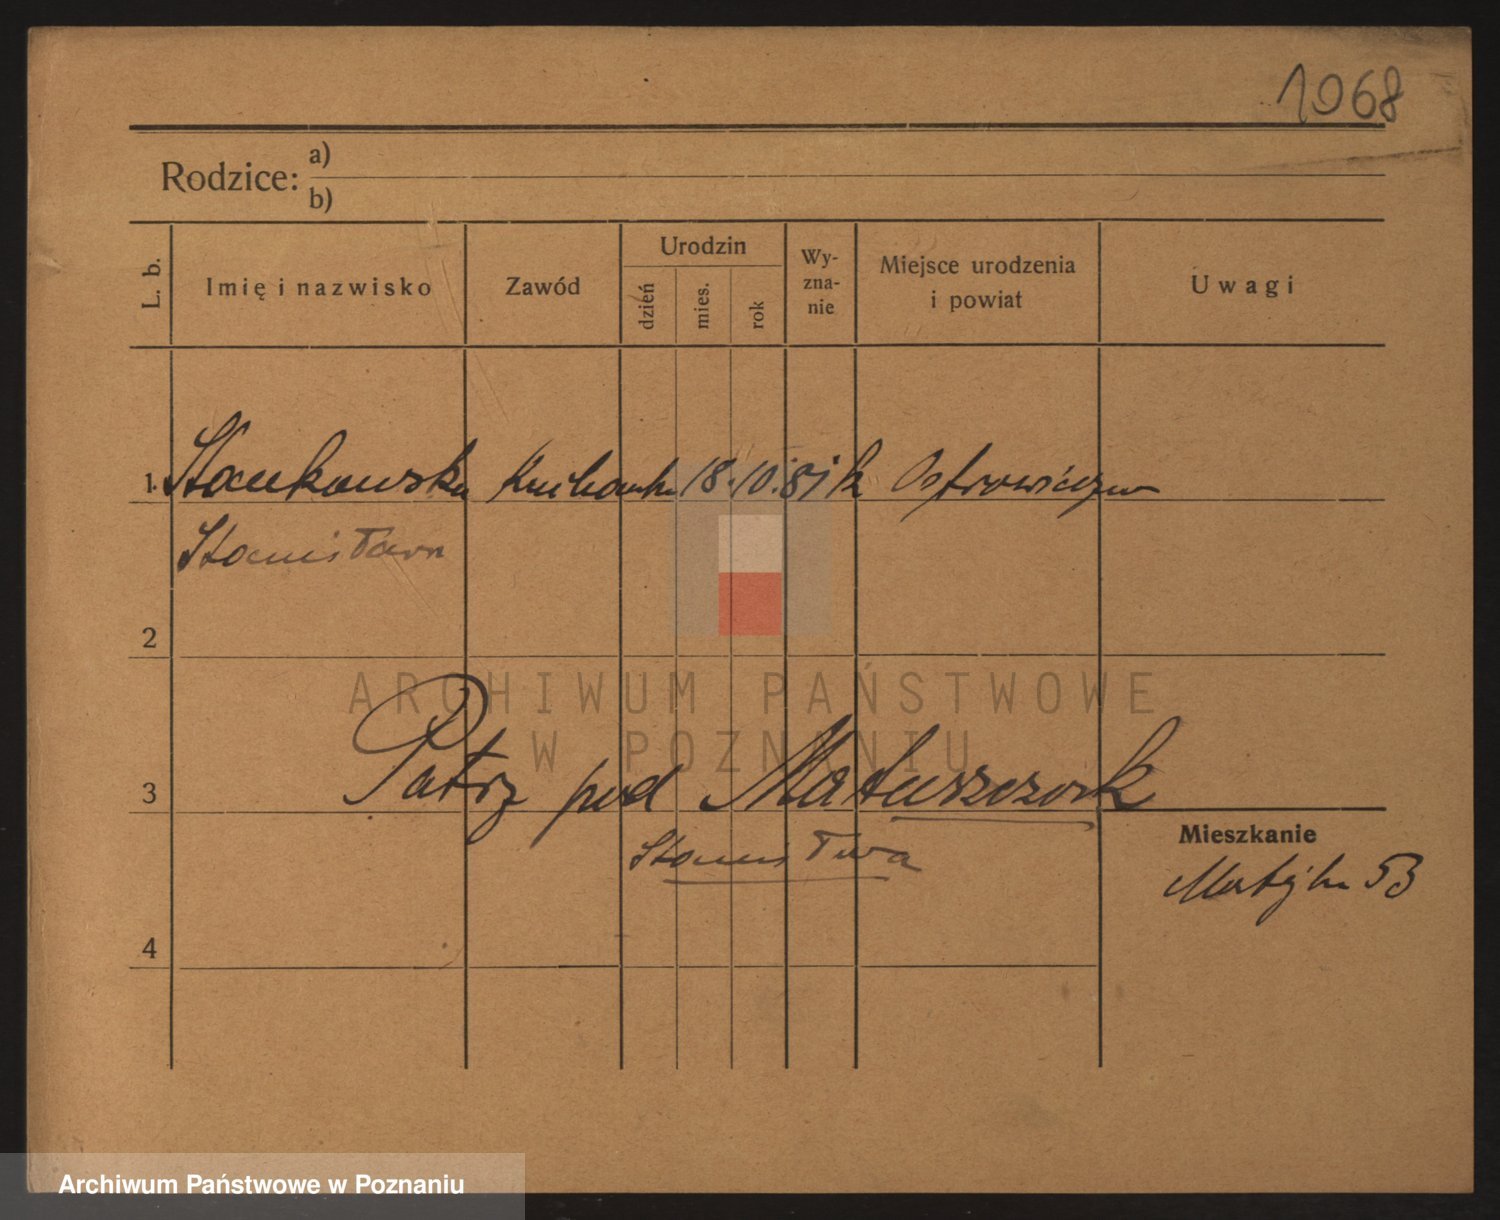 1068
Rodzice: a)
b)
L. b.
Imię i nazwisko
Zawód
Urodzin
dzień
mies.
rok
Wy-
zna-
nie
Miejsce urodzenia
i powiat
Uwagi
1. Stankowska Kucharka 18.10.81 k
Stanisława
2
ARCHIWUM PAŃSTWOWE
W POZNANIU
3 Patrz pod Matuszczak
Stanisława
Mieszkanie
Matejki 53
4
Archiwum Państwowe w Poznaniu